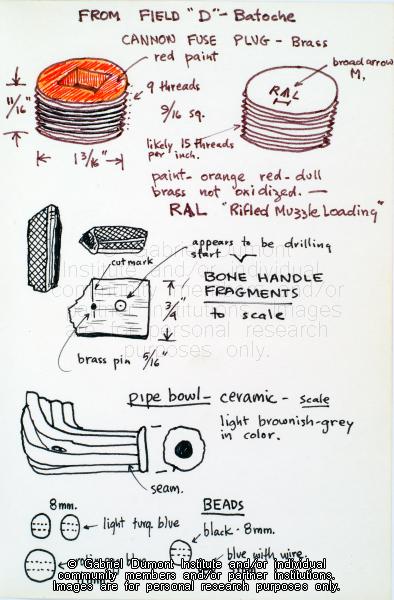 FROM FIELD "D" - Batoche
CANNON FUSE PLUG - Brass
red paint
broad arrow
M,
9 threads
11/16"
9/16 sq.
RAL
likely 15 threads
per inch.
1 3/16"
paint - orange red - dull
brass not oxidized. —
RAL "Rifled Muzzle Loading"
appears to be drilling
start
cut mark
BONE HANDLE
FRAGMENTS
to scale
3/4"
brass pin 5/16"
Gabriel Dumont
Institute and/or individual
community members and/or
partner institutions. Images
are for personal research
purposes only.
pipe bowl - ceramic - scale
light brownish-grey
in color.
seam.
8mm.
BEADS
light turq blue
black - 8mm.
blue with wire
© Gabriel Dumont Institute and/or individual
community members and/or partner institutions.
Images are for personal research purposes only.